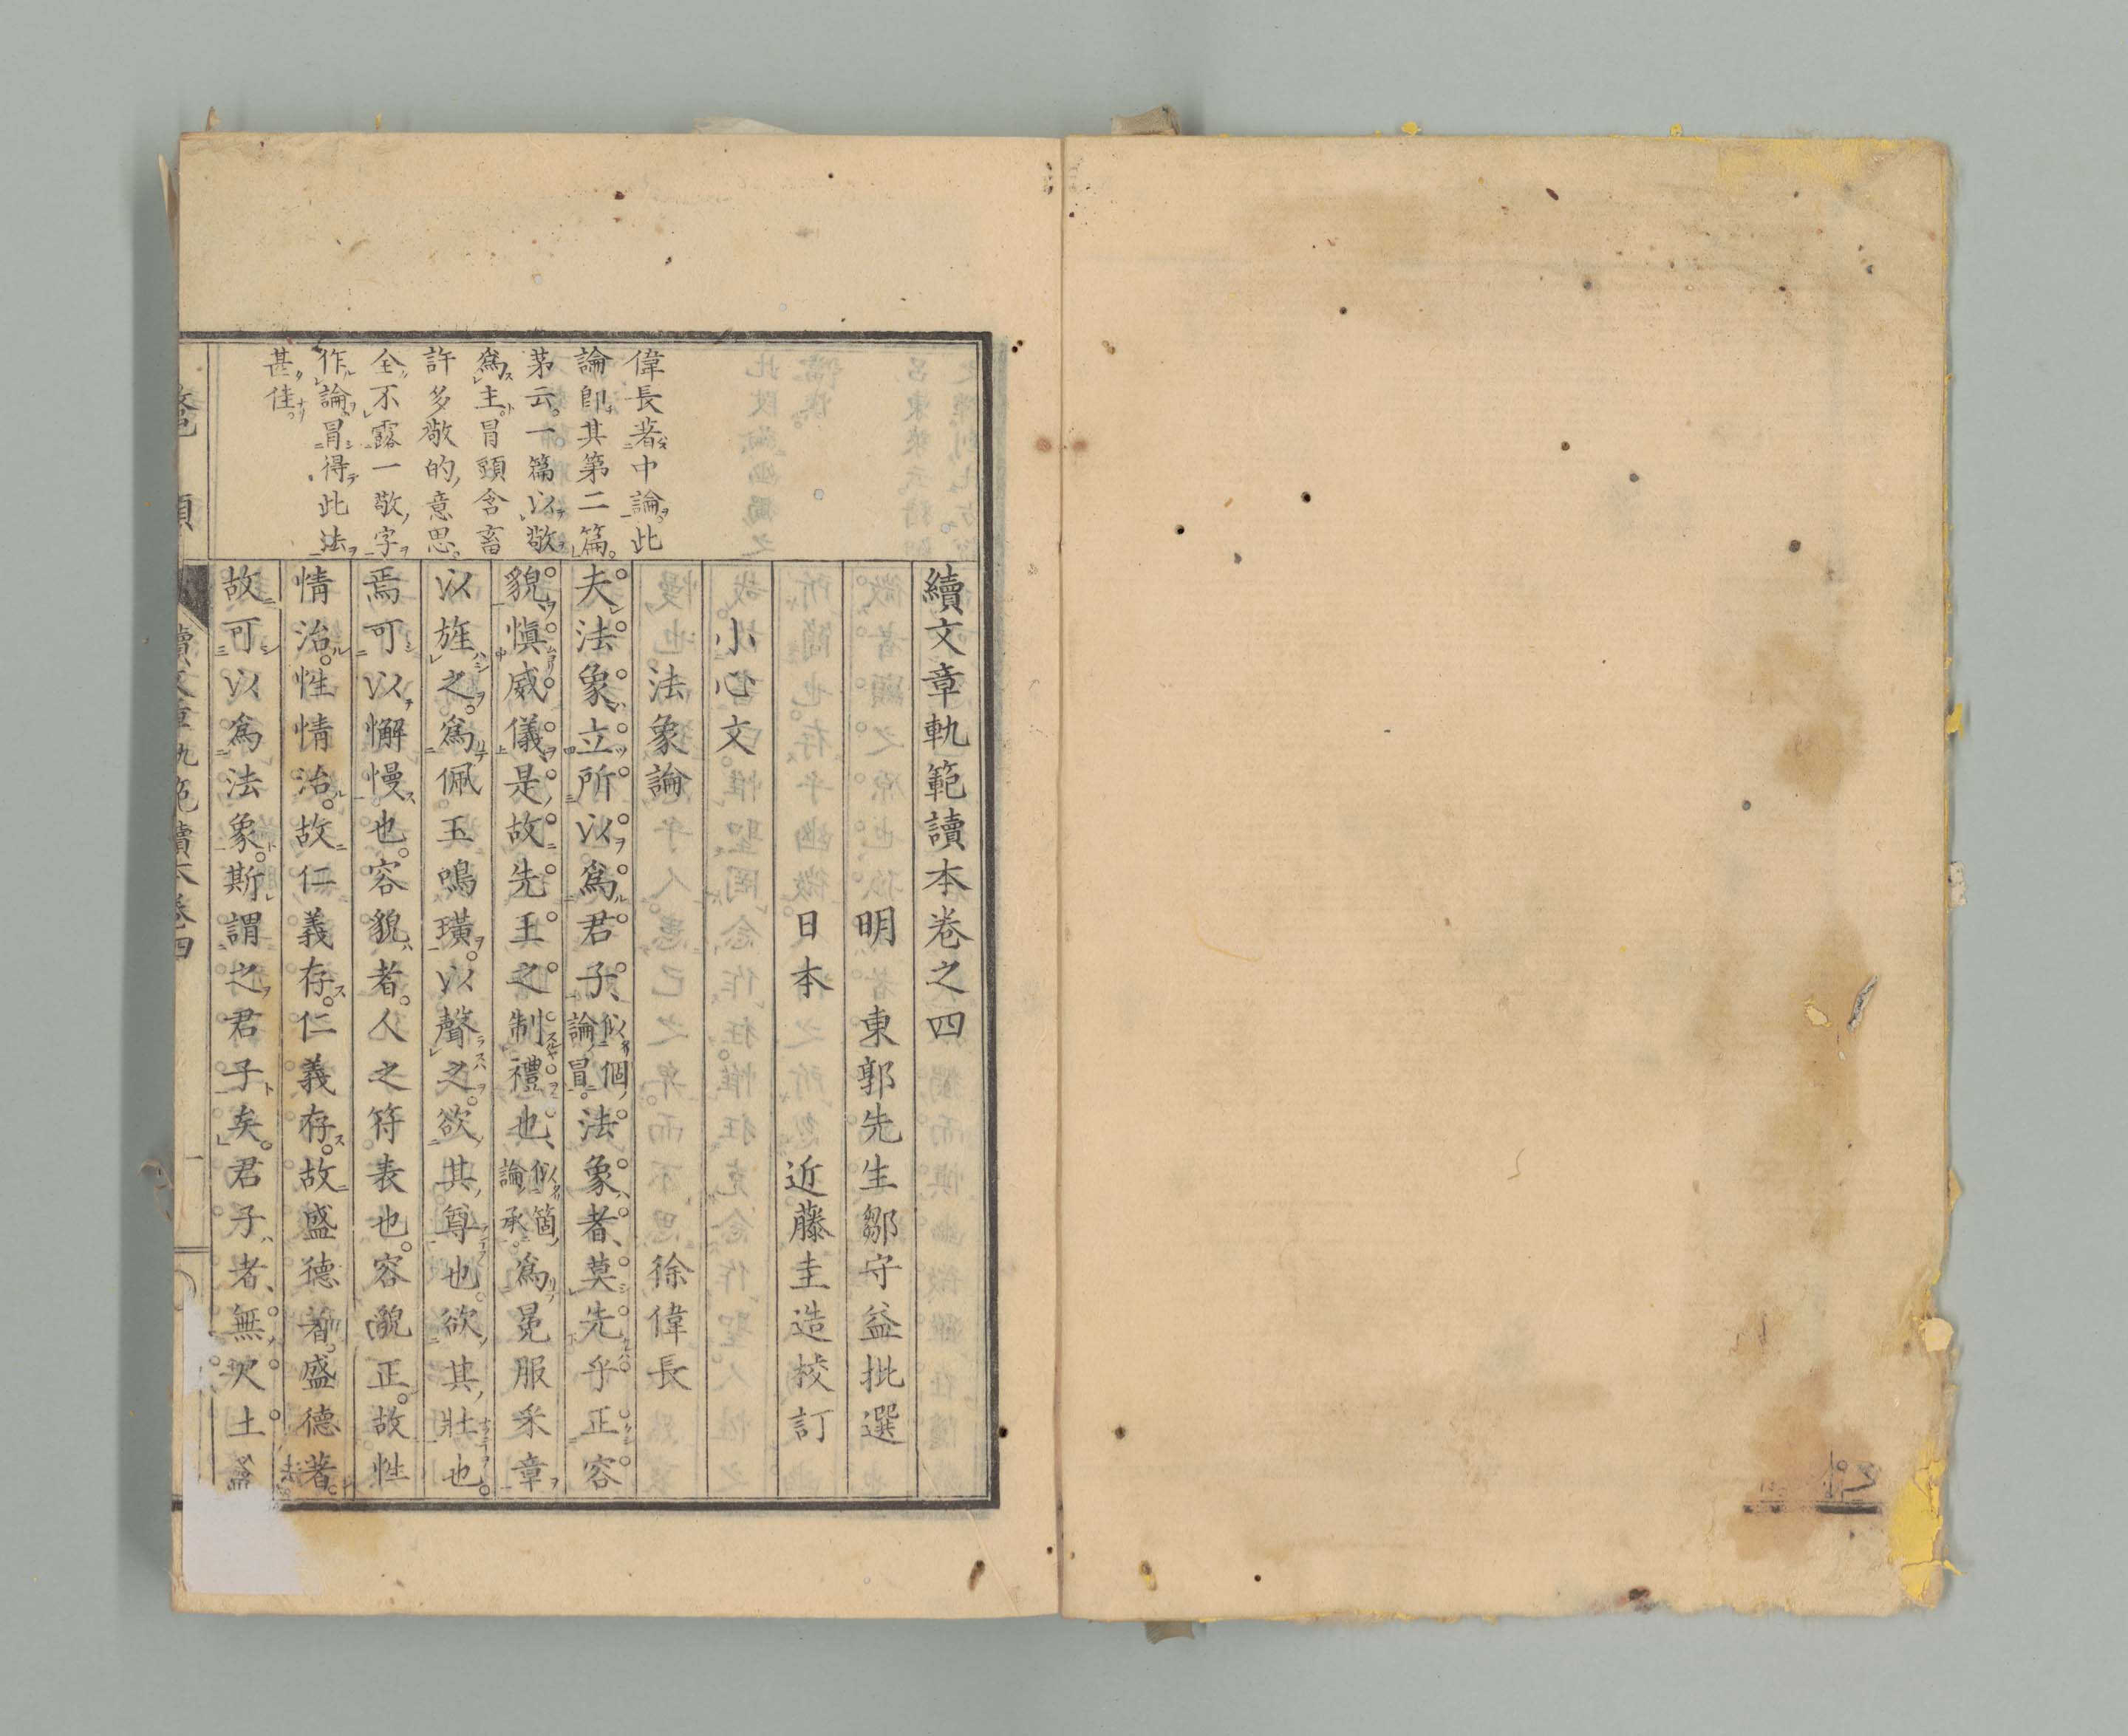 續文章軌範讀本卷之四
明 東郭先生鄒守益批選
日本 近藤圭造校訂
小心文
法象論 徐偉長
夫法象立所以爲君子、似個論冒法象者、莫先乎正容
貌愼威儀是故先王之制禮也、似箇論承爲冕服采章
以旌之。爲佩玉鳴璜。以聲之。欲其尊也欲其壯也。
焉可以懈慢也。容貌者。人之符表也。容貌正。故性
情治。性情治。故仁義存。仁義存。故盛德著。盛德著。
故可以爲法象。斯謂之君子矣。君子者、無尺土
偉長著中論此
論卽其第二篇。
茅云。一篇以敬
爲主。冒頭含畜
許多敬的意思。
全不露一敬字
作論冒得此法
甚佳。
續文章軌範讀本卷四
一